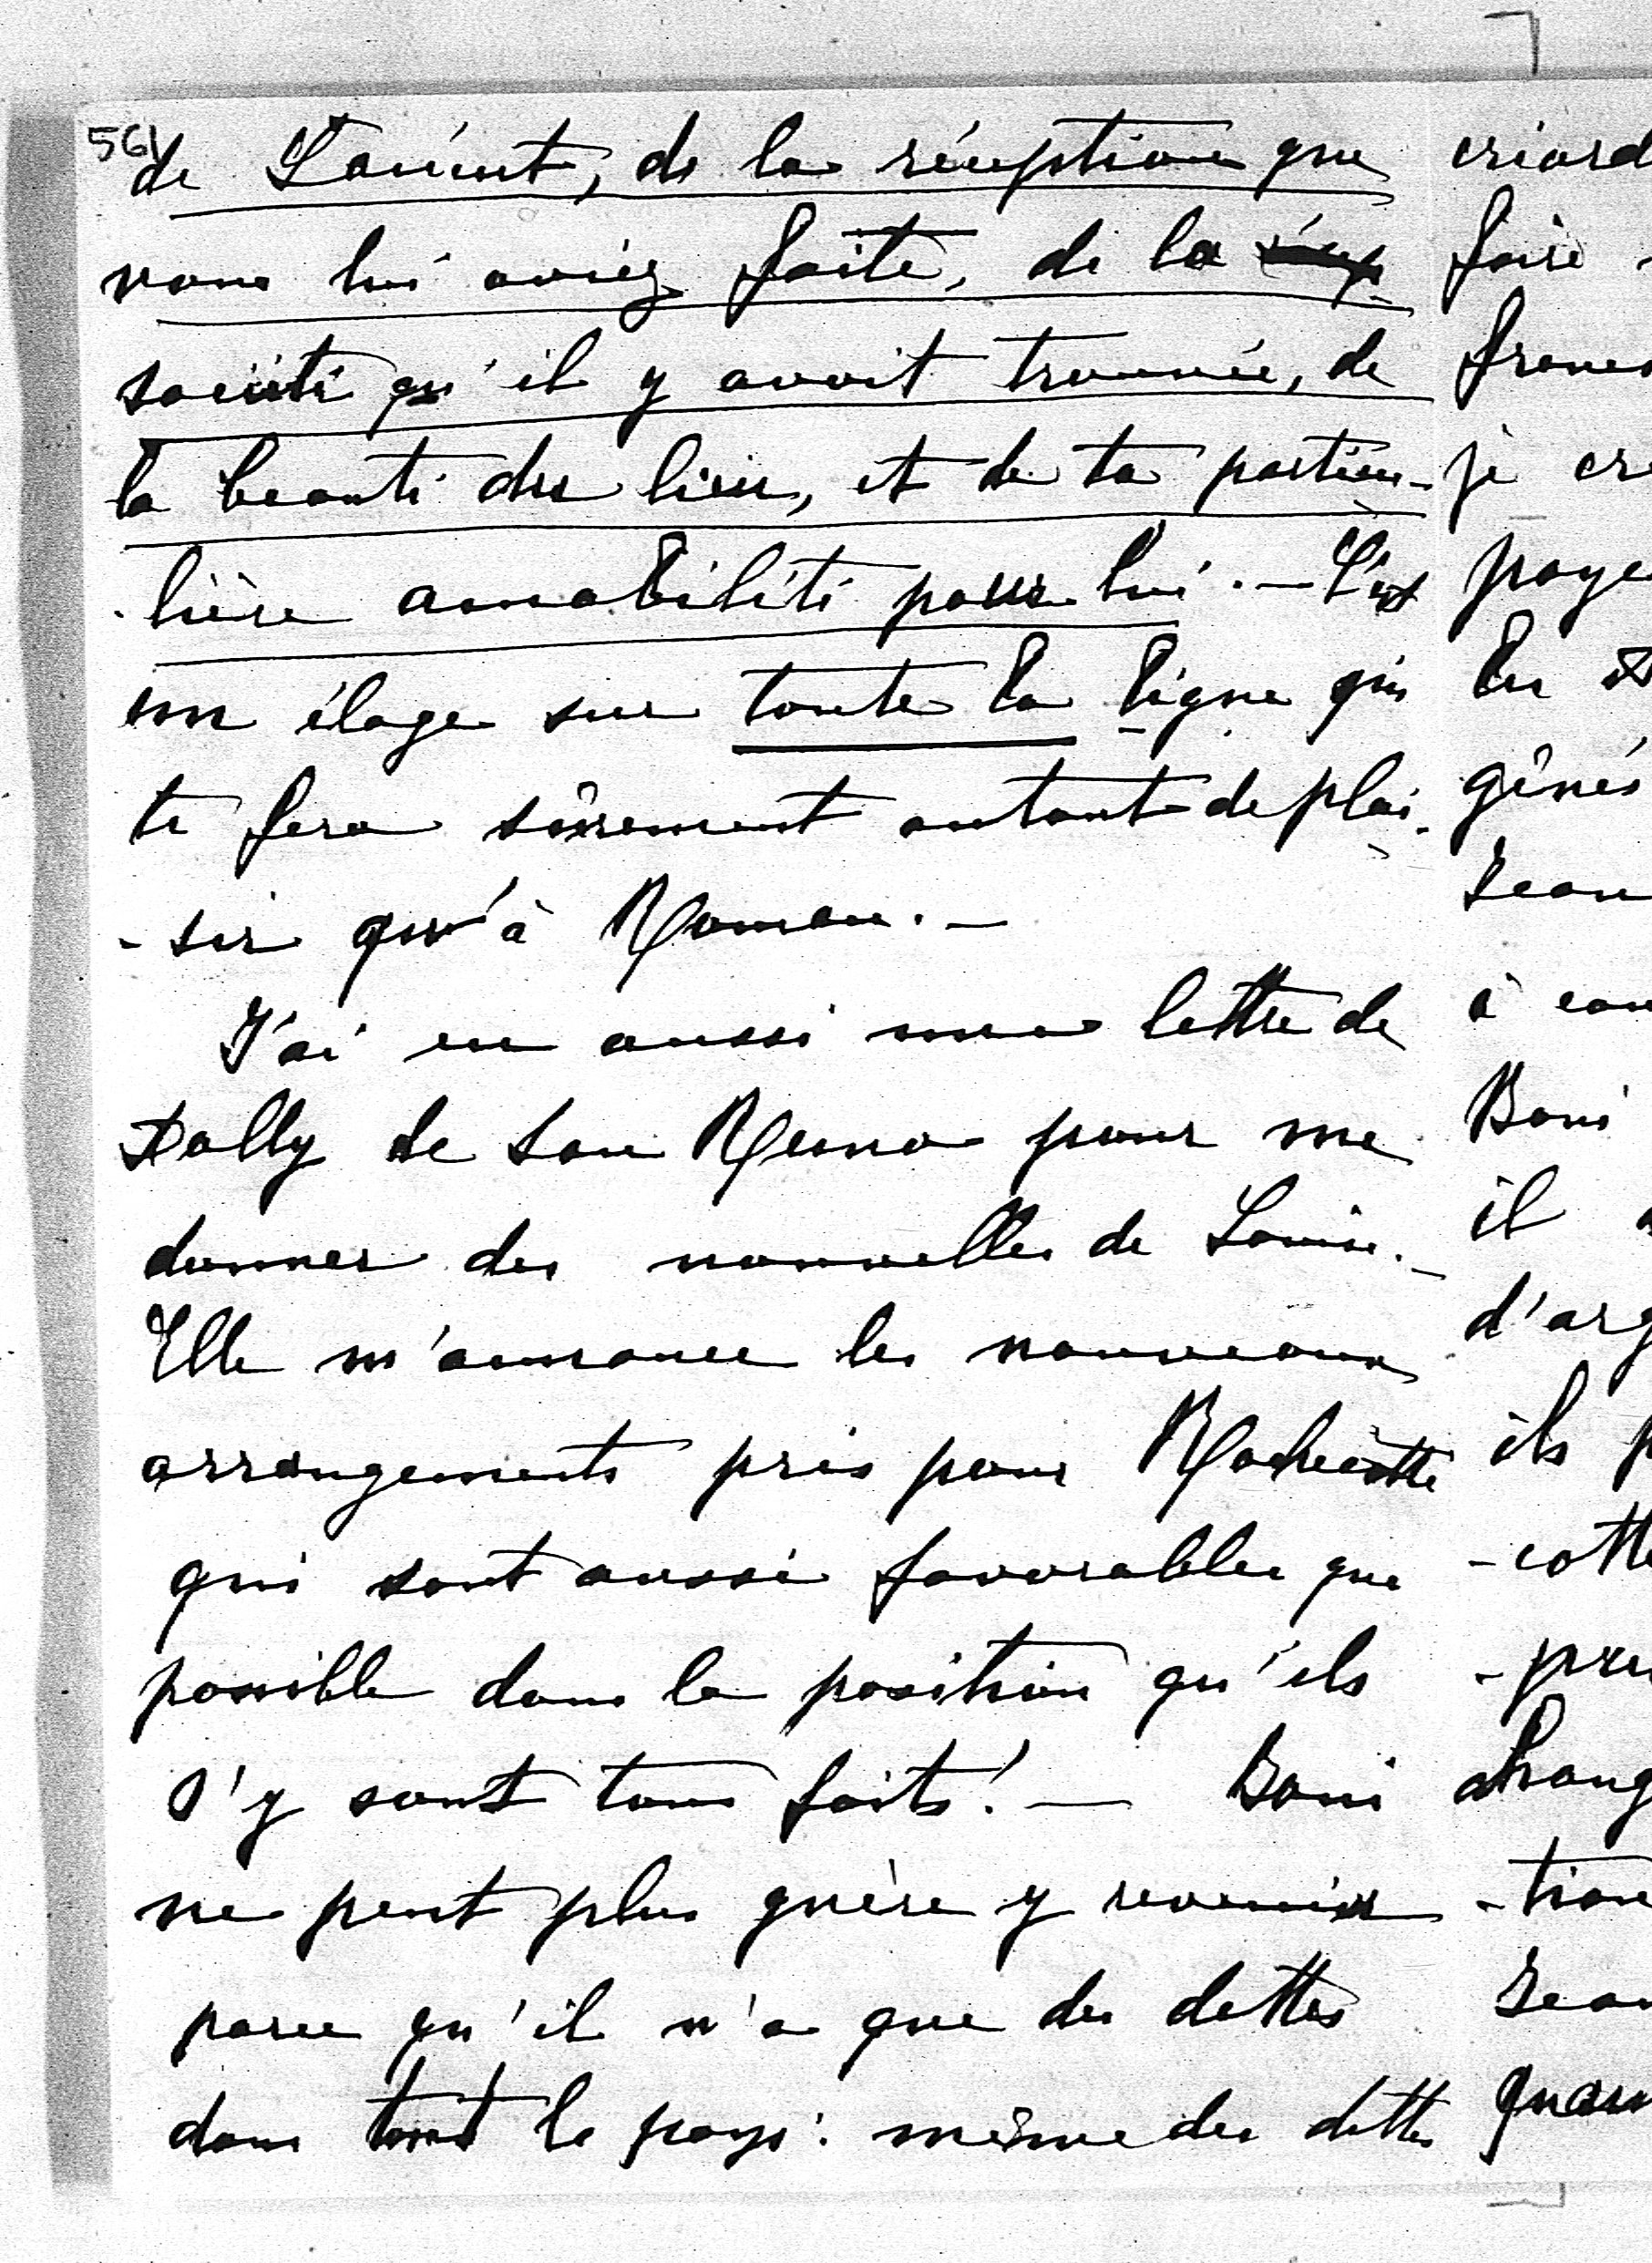 561
de Lancut, de la réception que
vous lui aviez faite, de la
société qu'il y avait trouvée, de
la beauté du lieu, et de ta particu-
-lière amabilité pour lui. — C'est
un éloge sur toute la ligne qui
te fera sûrement autant de plai-
-sir qu'à Roman. —
J'ai eu aussi une lettre de
Dolly de San Remo pour me
donner des nouvelles de Louise. —
Elle m'annonce les nouveaux
arrangements pris pour Rochecotte
qui sont aussi favorables que
possible dans la position qu'ils
s'y sont tous faits! — Boni
ne peut plus guère y revenir
parce qu'il n'a que des dettes
dans tout le pays: même des dettes
criard
faire
francs
je cr
paye
En
gênés
Jean
à
Boni
il
d'arg
ils p
-cotte
-pru
chang
-tion
Jean
quan